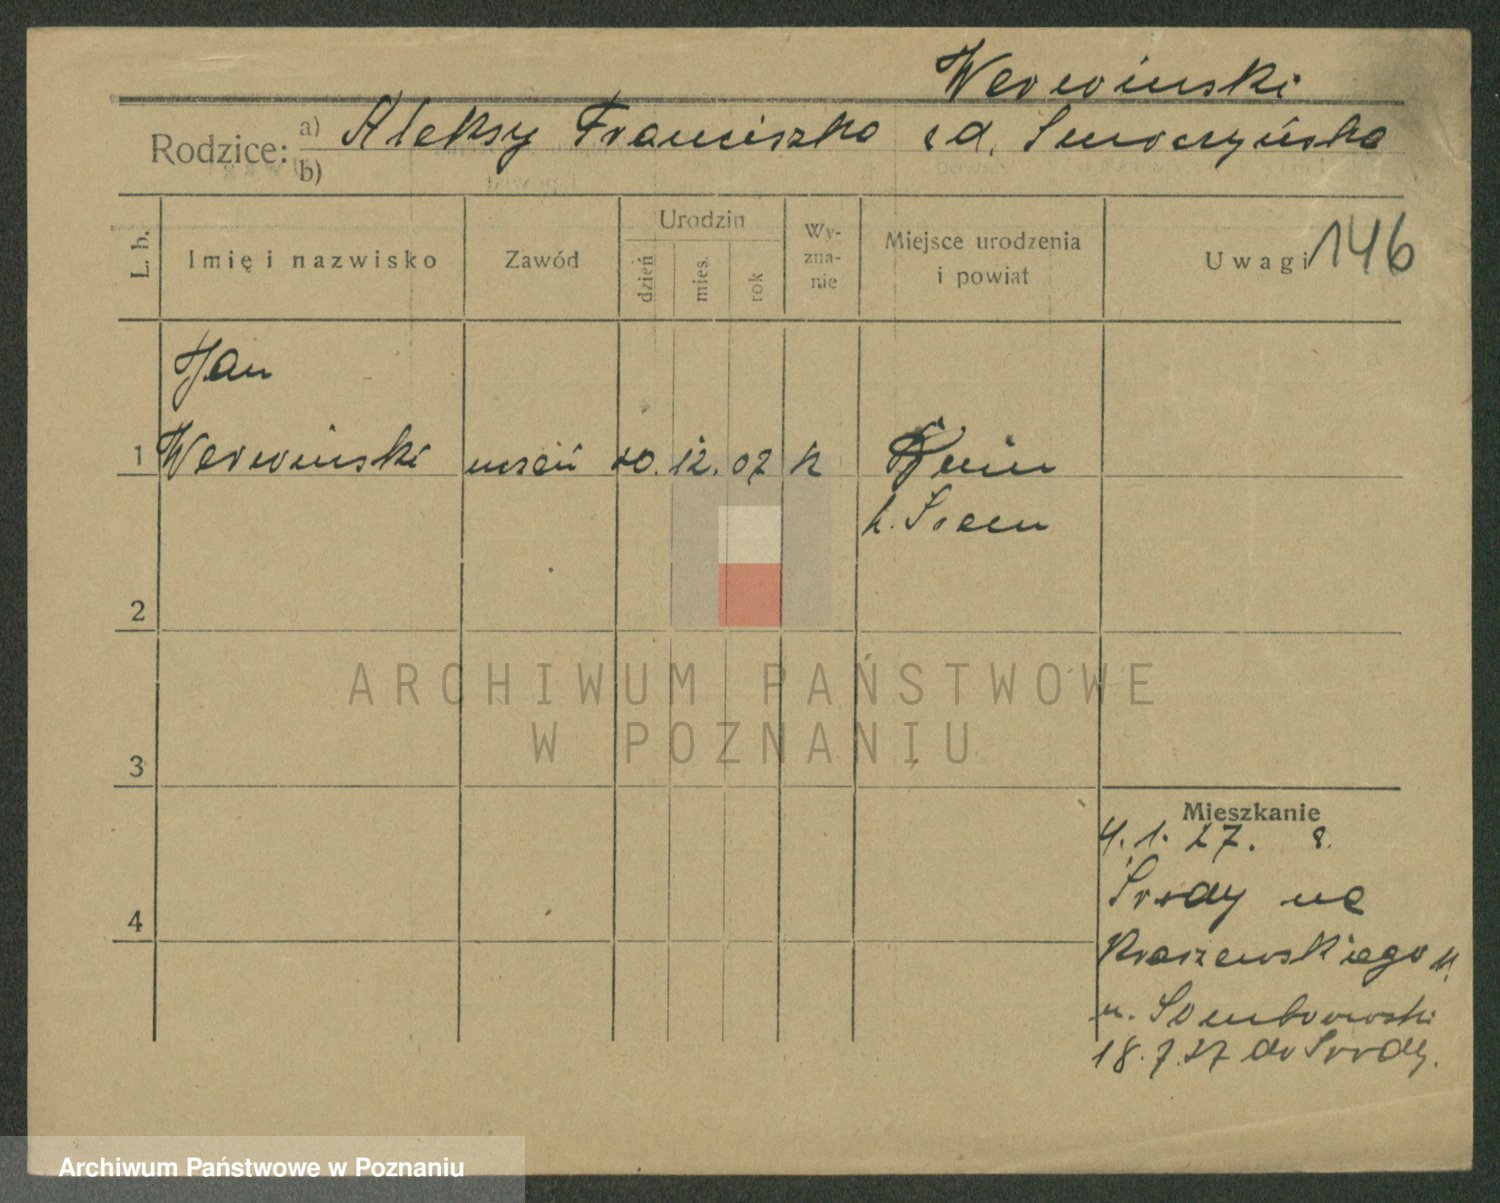 Werwiński
Rodzice: a) b) Aleksy Franciszka z d. Smoczyńska
L. b. Imię i nazwisko Zawód Urodzin dzień mies. rok Wy-zna-nie Miejsce urodzenia i powiat Uwagi 146
Jan
1 Werwiński uczeń 20. 12. 07 k
p. Śrem
2
ARCHIWUM PAŃSTWOWE
W POZNANIU
3
Mieszkanie
4. 1. 27. z
Środy na
4
Kraszewskiego
u. Dombrowski
18. 7. 27 do Środy.
Archiwum Państwowe w Poznaniu